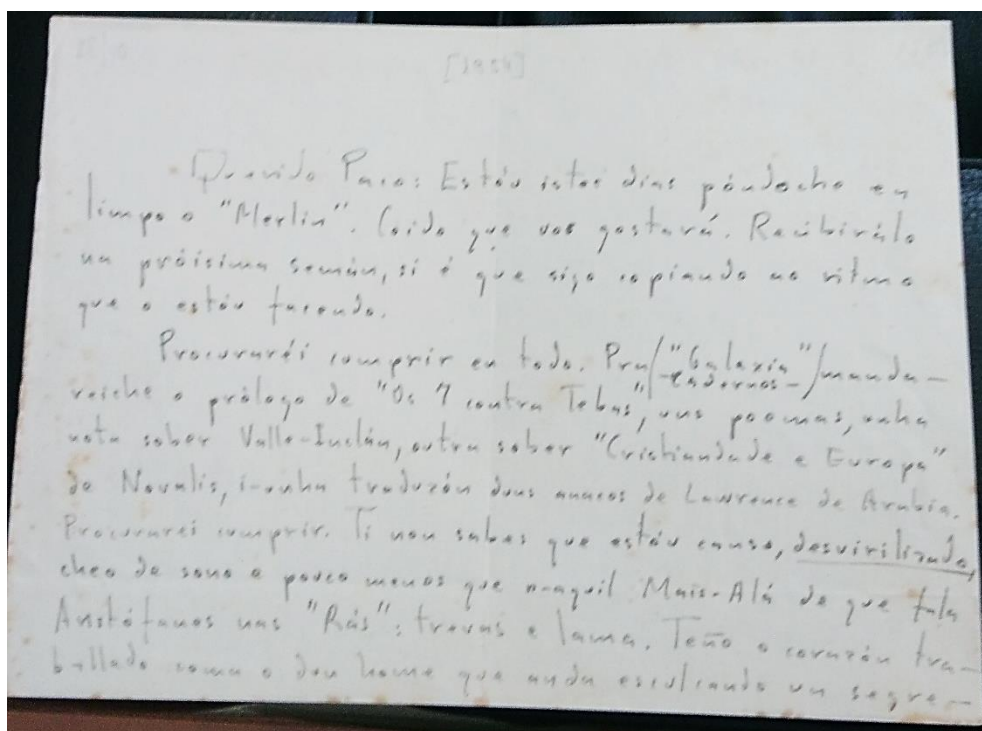 [1954]
Querido Paco: Estóu istos dias póndocho en
limpo o "Merlin". Coido que vos gostará. Recibirálo
na próisima semán, si é que sigo copiando ao ritmo
que o estóu facendo.
Procuraréi cumprir en todo. Pra/"Galaxia"/manda-
-cadernos-
reiche o prólogo de "Os 7 contra Tebas", uns poemas, unha
nota sober Valle-Inclán, outra sober "Cristiandade e Europa"
de Novalis, i-unha traduzón dous anacos de Lawrence de Arabia.
Procurarei cumprir. Ti non sabes que estóu canso, desvirilizado,
cheo de sono e pouco menos que n-aquil Mais-Alá de que fala
Aristófanes nas "Rás": trevas e lama. Teño o corazón tra-
ballado coma o dun home que anda esculcando un segre-